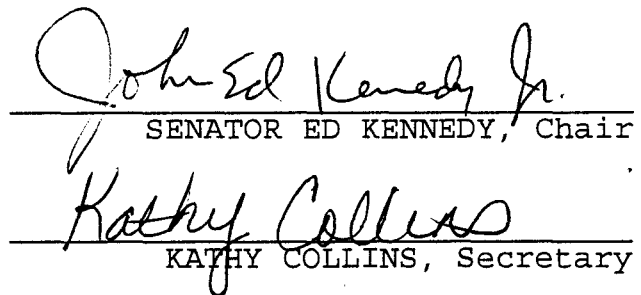 John Ed Kennedy Jr.
SENATOR ED KENNEDY, Chair
Kathy Collins
KATHY COLLINS, Secretary